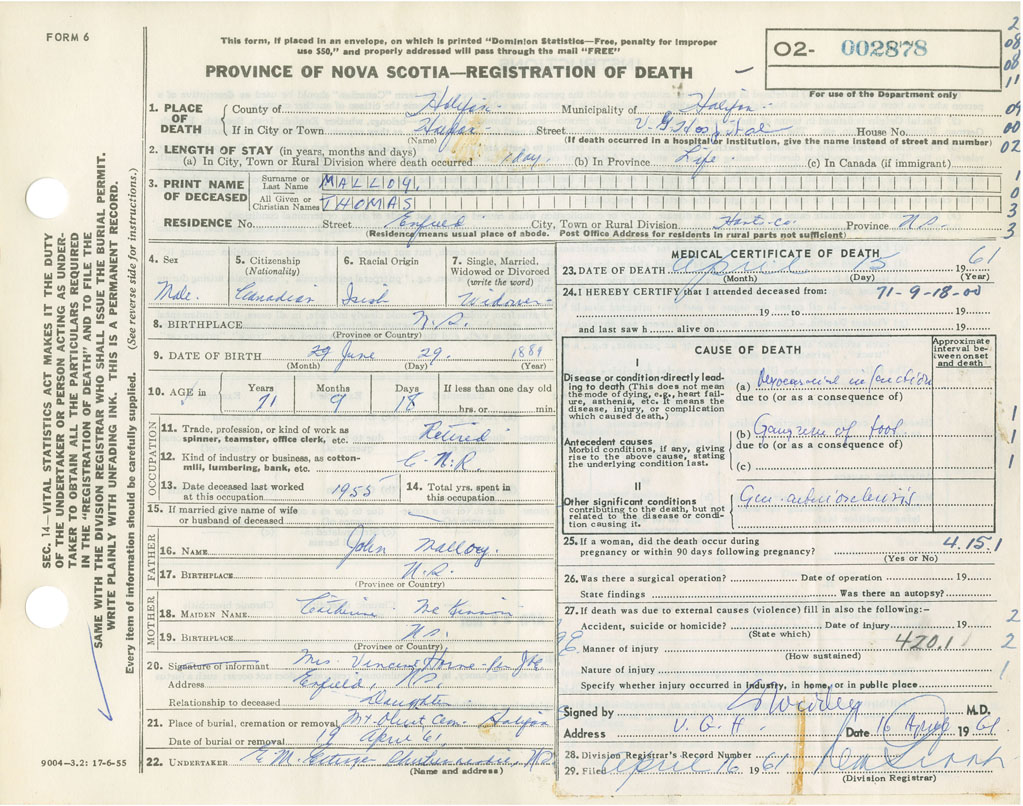 FORM 6
This form, if placed in an envelope, on which is printed "Dominion Statistics—Free, penalty for improper
use $50," and properly addressed will pass through the mail "FREE"
PROVINCE OF NOVA SCOTIA—REGISTRATION OF DEATH
02- 002878
For use of the Department only
2
08
08
11
09
00
02
1
0
3
3
1. PLACE OF DEATH
County of Halifax Municipality of Halifax
If in City or Town Halifax Street V.G. Hospital House No.
(Name) (If death occurred in a hospital or institution, give the name instead of street and number)
2. LENGTH OF STAY (in years, months and days)
(a) In City, Town or Rural Division where death occurred 1 day. (b) In Province Life (c) In Canada (if immigrant)
3. PRINT NAME OF DECEASED
Surname or Last Name MALLOY,
All Given or Christian Names THOMAS
RESIDENCE No. Street Enfield City, Town or Rural Division Hants Co. Province N.S.
(Residence means usual place of abode. Post Office Address for residents in rural parts not sufficient)
4. Sex
Male.
5. Citizenship (Nationality)
Canadian
6. Racial Origin
Irish
7. Single, Married, Widowed or Divorced (write the word)
Widower
8. BIRTHPLACE N.S.
(Province or Country)
9. DATE OF BIRTH 29 June 29. 1889
(Month) (Day) (Year)
10. AGE in Years Months Days If less than one day old
71 9 18 hrs. or min.
OCCUPATION
11. Trade, profession, or kind of work as spinner, teamster, office clerk, etc. Retired
12. Kind of industry or business, as cotton-mill, lumbering, bank, etc. C.N.R.
13. Date deceased last worked at this occupation 1955
14. Total yrs. spent in this occupation
15. If married give name of wife or husband of deceased —
FATHER
16. NAME John Malloy.
17. BIRTHPLACE N.S.
(Province or Country)
MOTHER
18. MAIDEN NAME Catherine McKinnon
19. BIRTHPLACE N.S.
(Province or Country)
20. Signature of informant Mrs. Vincent Horne
Address Enfield, N.S.
Relationship to deceased Daughter
21. Place of burial, cremation or removal Mt Olivet Cem. Halifax
Date of burial or removal 19 April 61
22. UNDERTAKER E. M.
(Name and address)
MEDICAL CERTIFICATE OF DEATH
23. DATE OF DEATH April 15 1961
(Month) (Day) (Year)
24. I HEREBY CERTIFY that I attended deceased from: 71-9-18-00
19 to 19
and last saw h alive on 19
CAUSE OF DEATH
Approximate interval between onset and death
I
Disease or condition directly leading to death (This does not mean the mode of dying, e.g., heart failure, asthenia, etc. It means the disease, injury, or complication which caused death.)
(a) Myocardial infarction
due to (or as a consequence of)
Antecedent causes
Morbid conditions, if any, giving rise to the above cause, stating the underlying condition last.
(b) Gangrene of foot
due to (or as a consequence of)
(c)
1
1
1
II
Other significant conditions contributing to the death, but not related to the disease or condition causing it.
Gen. arteriosclerosis
25. If a woman, did the death occur during pregnancy or within 90 days following pregnancy? 4.15.1
(Yes or No)
26. Was there a surgical operation? Date of operation 19
State findings Was there an autopsy?
27. If death was due to external causes (violence) fill in also the following:—
Accident, suicide or homicide? Date of injury 19 2
(State which)
Manner of injury 420.1 2
(How sustained)
Nature of injury 1
Specify whether injury occurred in Industry, in home, or in public place
Signed by M.D.
Address V.G.H. Date 16 April 1961
28. Division Registrar's Record Number
29. Filed April 16 1961
(Division Registrar)
SEC. 14—VITAL STATISTICS ACT MAKES IT THE DUTY
OF THE UNDERTAKER OR PERSON ACTING AS UNDER-
TAKER TO OBTAIN ALL THE PARTICULARS REQUIRED
IN THE "REGISTRATION OF DEATH" AND TO FILE THE
SAME WITH THE DIVISION REGISTRAR WHO SHALL ISSUE THE BURIAL PERMIT.
WRITE PLAINLY WITH UNFADING INK. THIS IS A PERMANENT RECORD.
Every item of information should be carefully supplied. (See reverse side for instructions.)
9004—3.2: 17-6-55